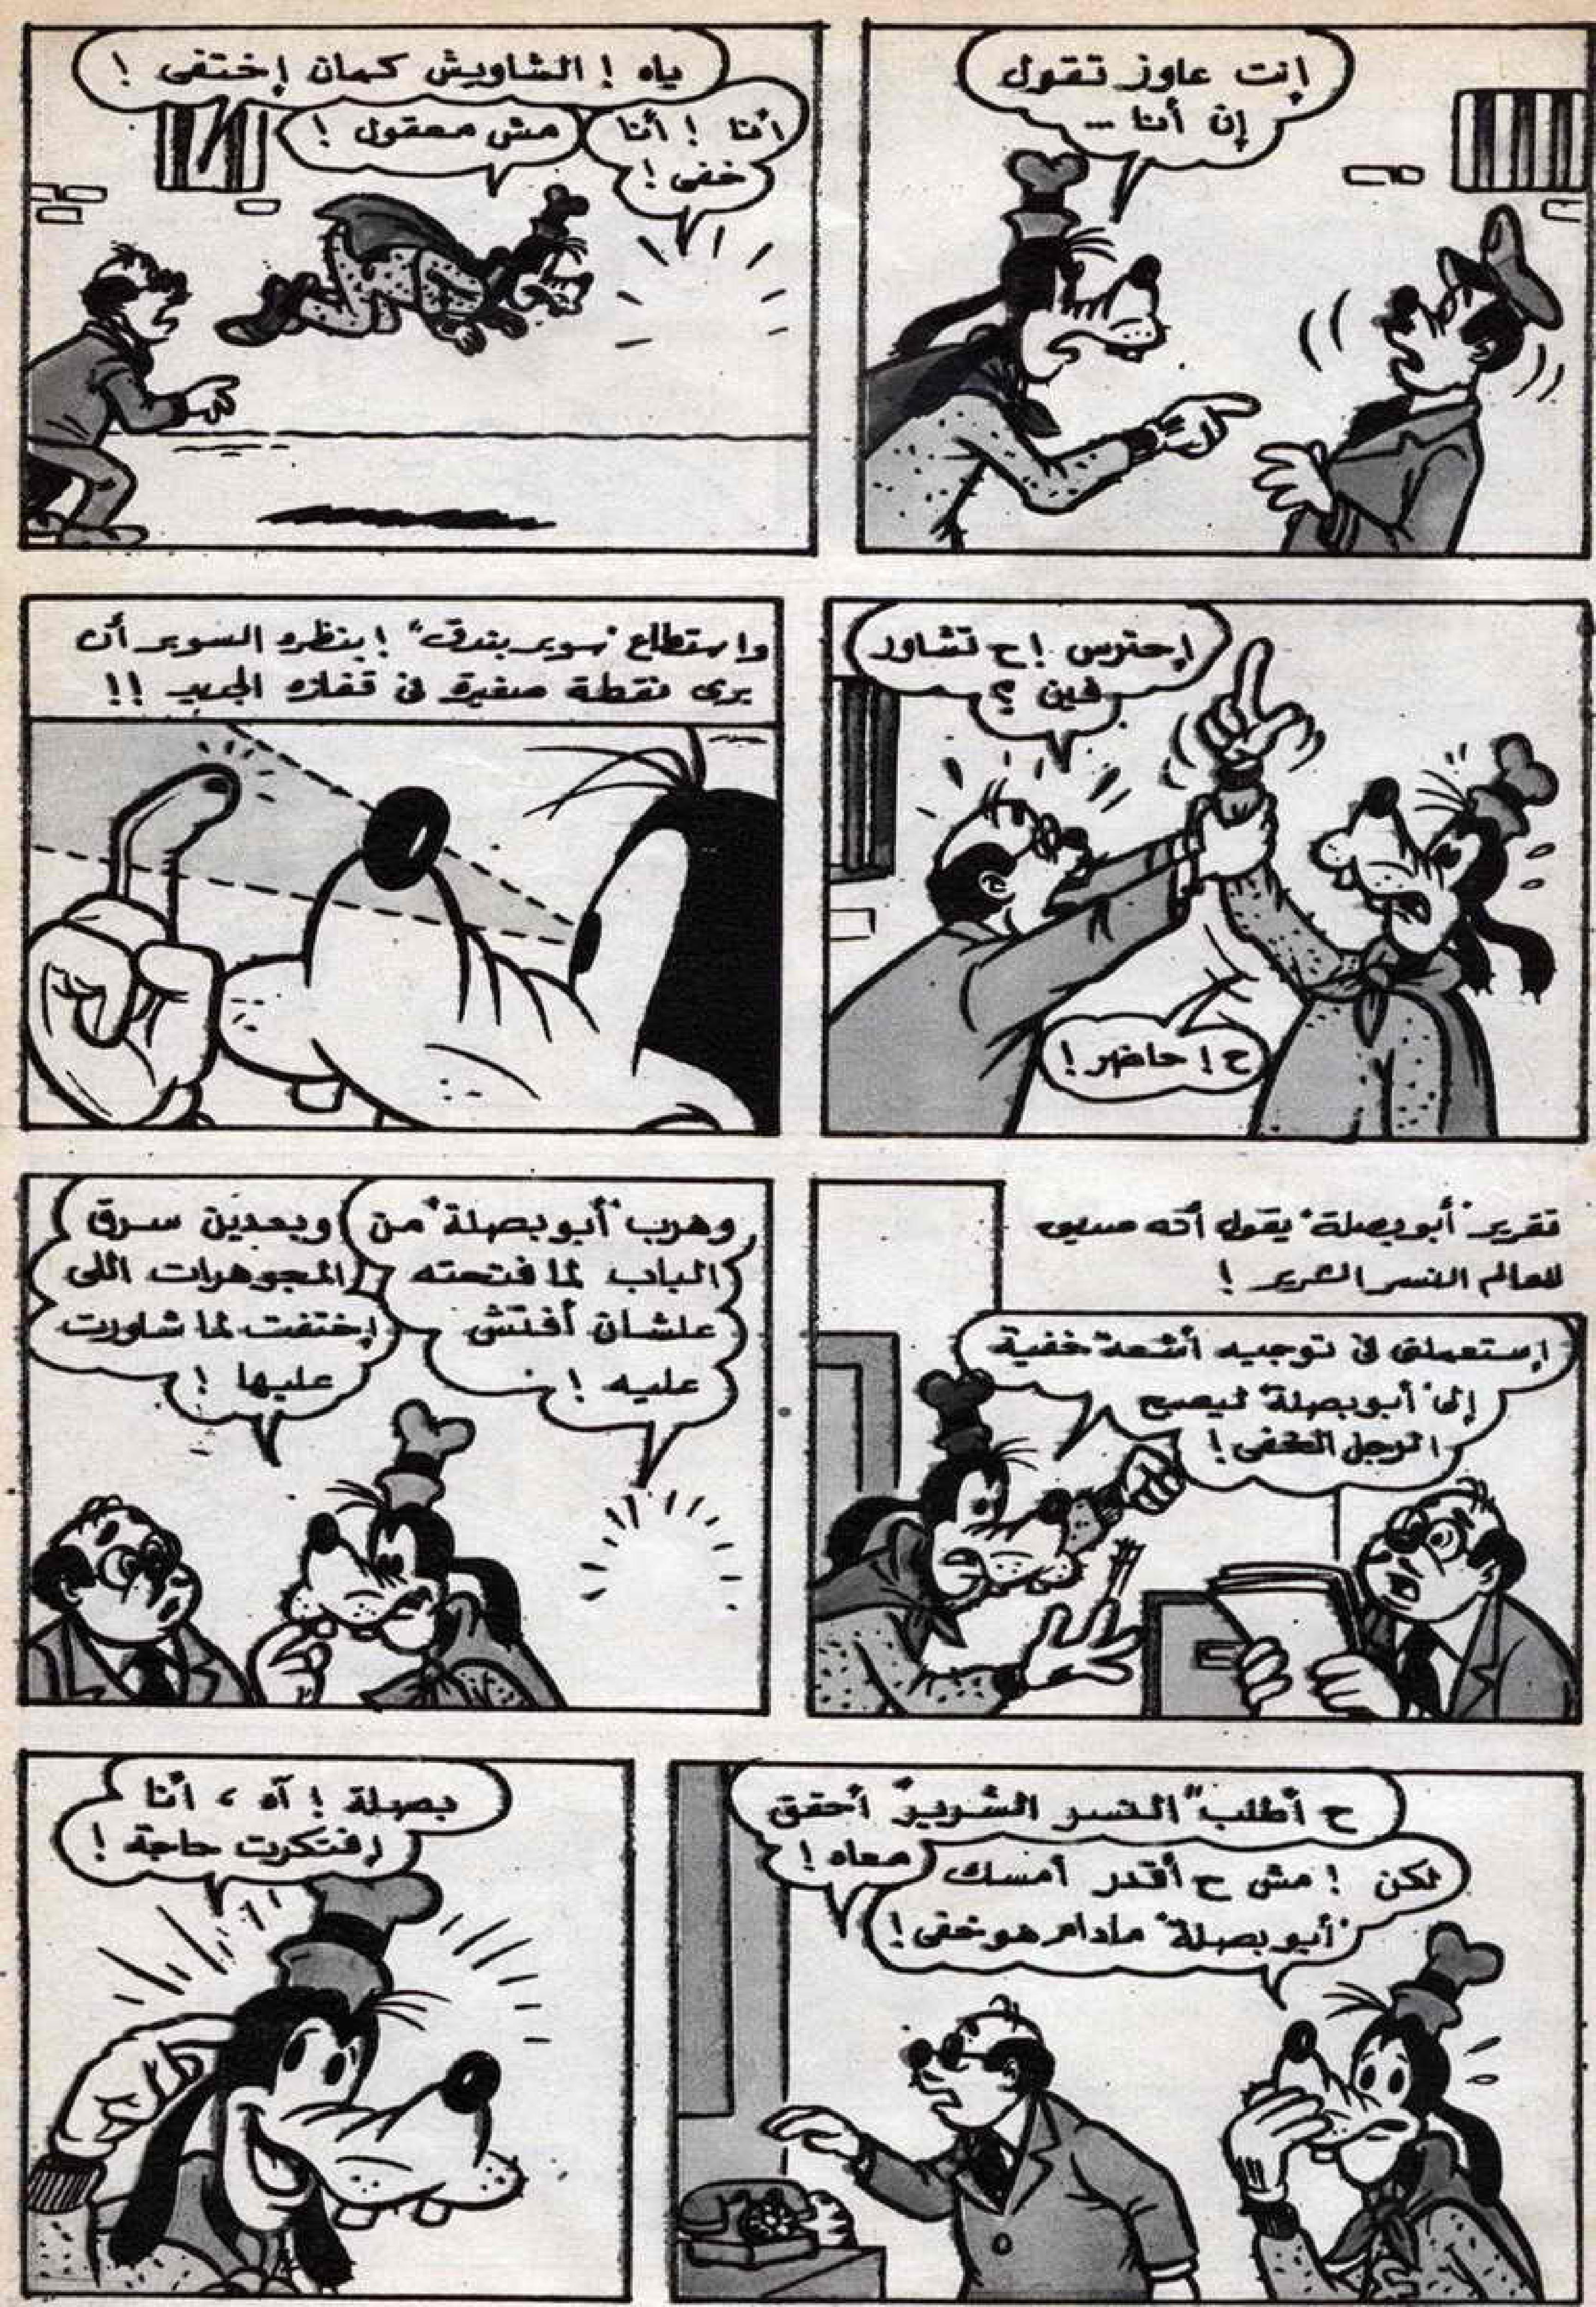 إنت عاوز تقول
إن أنا ...
ياه ! الشاويش كمان إختفى !
أنا ! أنا
خفى !
مش معقول !
إحترس ! ح تشاور
فين ؟
ح ! حاضر !
واستطاع "سوبر بندق" ! بنظره السوبر أن
يرى نقطة صغيرة فى قفازه الجديد !!
تقرير "أبو بصلة" يقول أنه صديق
للعالم النسر الشرير !
إستعملنى فى توجيه أشعة خفية
إلى "أبو بصلة" ليصبح
الرجل الخفى !
وهرب "أبو بصلة" من
الباب لما فتحته
علشان أفتش
عليه !
وبعدين سرق
المجوهرات اللى
إختفت لما شاورت
عليها !
ح أطلب "النسر الشرير" أحقق
معاه !
لكن ! مش ح أقدر أمسك
"أبو بصلة" مادام هو خفى !
بصلة ! آه ، أنا
إفتكرت حاجة !